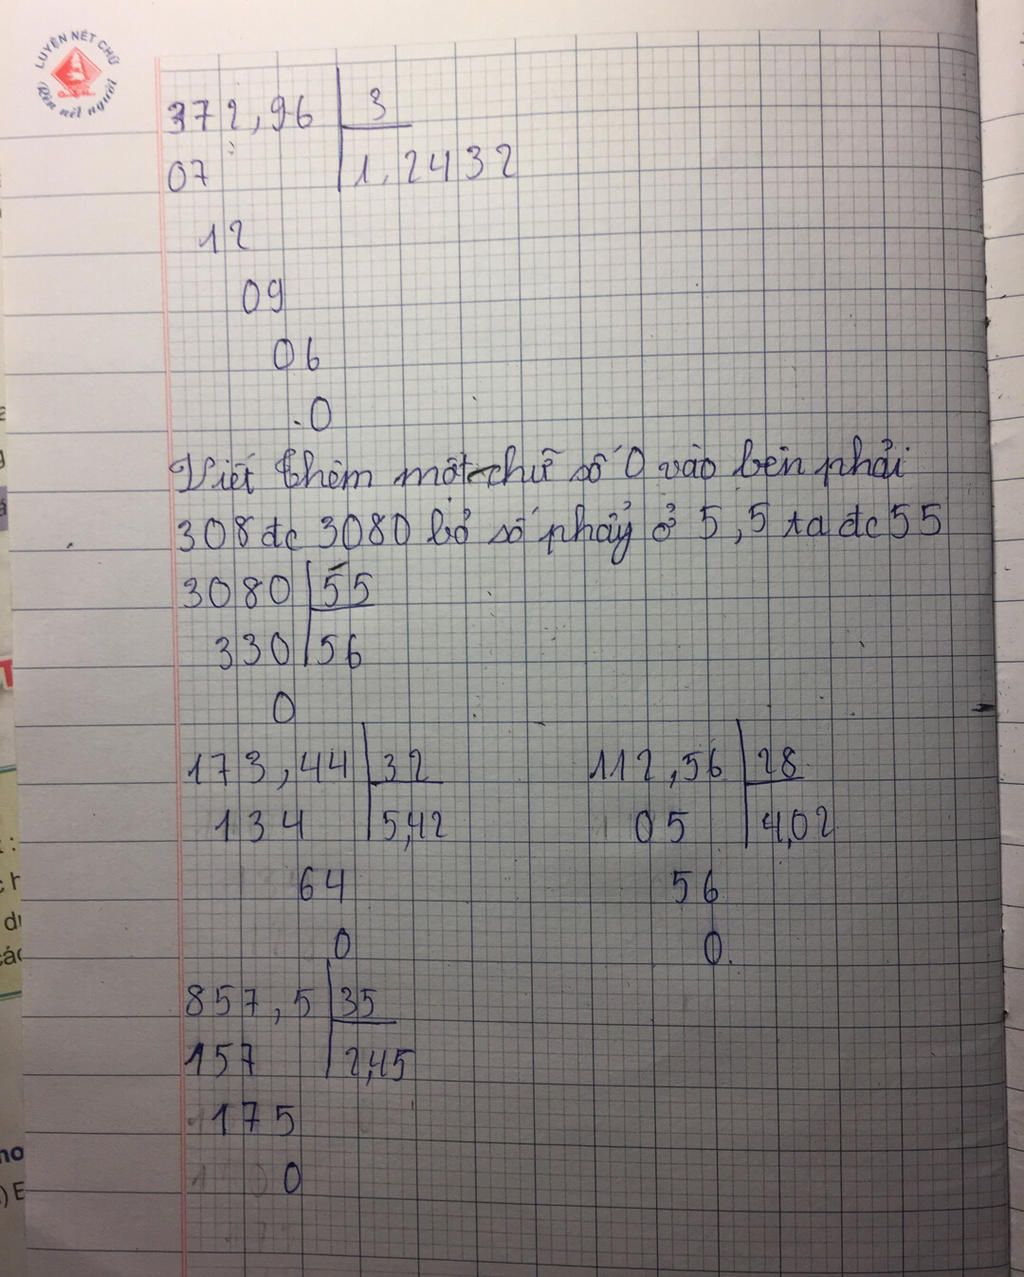 LUYỆN NÉT CHỮ
Rèn nết người
372,96 3
07 1,2432
12
09
06
0
Viết thêm một chữ số 0 vào bên phải
308 đc 3080 bỏ số phảy ở 5,5 ta đc 55
3080 55
330 56
0
173,44 32
134 5,42
64
0
112,56 28
05 4,02
56
0
857,5 35
157 2,45
175
0